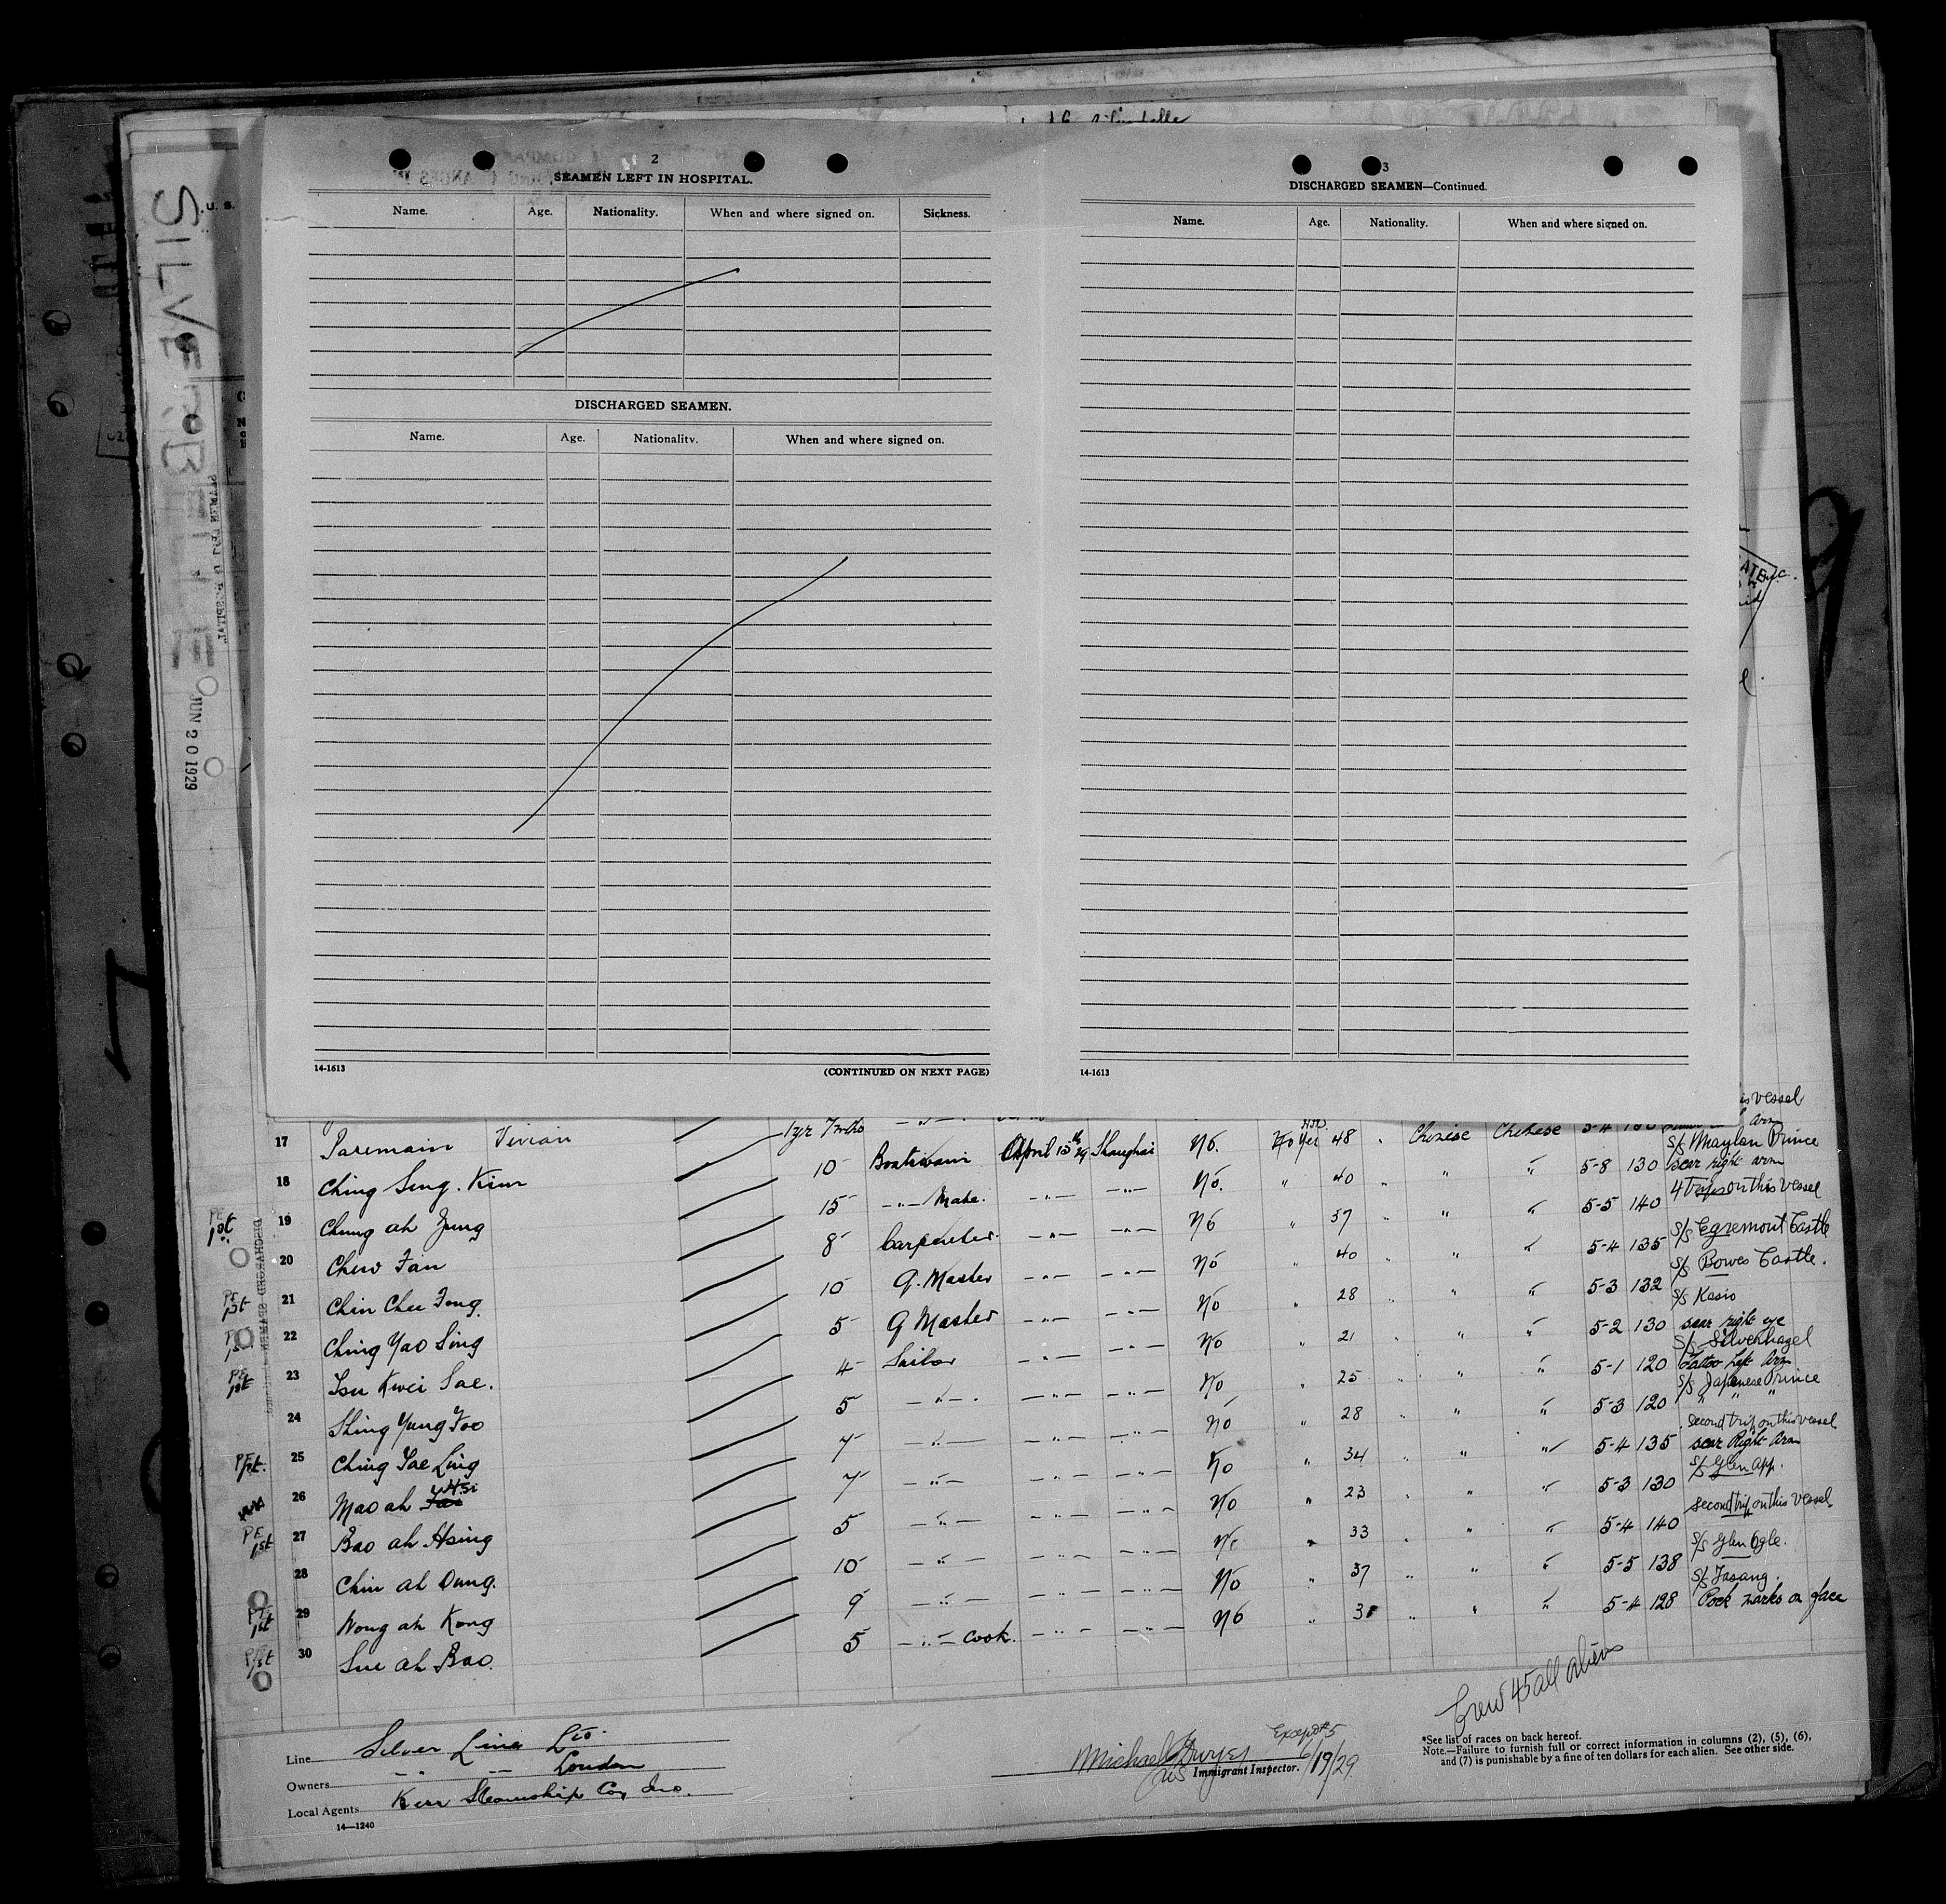 SILVERBELLE
JUN 20 1929
U. S.
2
SEAMEN LEFT IN HOSPITAL.
Name. Age. Nationality. When and where signed on. Sickness.
DISCHARGED SEAMEN.
Name. Age. Nationality. When and where signed on.
14-1613 (CONTINUED ON NEXT PAGE)
3
DISCHARGED SEAMEN—Continued.
Name. Age. Nationality. When and where signed on.
14-1613
vessel
17 Paremain Vivian 1yr 7mths
Arm
10 Boatswain April 15th 29 Shanghai No. No Yes 48 " Chinese Chinese 5-4 S/S Maylan Prince
18 Ching Sing. Kiur
15 -"- Mate. -"- -"- No. " 40 " " " 5-8 130 scar right arm
4 Trips on this Vessel
PE 1st 19 Chung ah Jung
8 Carpenter. -"- -"- No " 37 " " " 5-5 140 S/S Egremont Castle
20 Chew Fan
10 Q. Master -"- -"- No " 40 " " " 5-4 135 S/S Bowes Castle.
PE 1st 21 Chin Chu Fong.
5 Q Master -"- -"- No " 28 " " " 5-3 132 S/S Kasio
scar right eye
1st 22 Ching Yao Sing
4 Sailor -"- -"- No " 21 " " " 5-2 130 S/S Silverhazel
Tattoo Left Arm
PE 1st 23 Tsu Kwei Sae.
5 -"- -"- -"- No " 25 " " " 5-1 120 S/S Japanese Prince
24 Shing Yung Foo
7 -"- -"- -"- No " 28 " " " 5-3 120 " " "
second trip on this vessel
25 Ching Sae Ling
7 -"- -"- -"- No " 34 " " " 5-4 135 scar Right Arm
26 Mao ah
5 -"- -"- -"- No " 23 " " " 5-3 130 S/S Glen App.
second trip on this vessel
PE 1st 27 Bao ah Hsing
10 -"- -"- -"- No " 33 " " " 5-4 140 S/S Glen Ogle.
28 Chin ah Dung.
9 -"- -"- -"- No " 37 " " " 5-5 138 S/S Fasang.
1st 29 Wong ah Kong
5 -"- cook. -"- -"- No " 31 " " " 5-4 128 Pock marks on face
30 Sue ah Bao.
Crew 45 all aliens
Except #5
Line Silver Line Ltd.
Owners -"- -"- London
Local Agents Kerr Steamship Co, Inc.
14—1240
Michael Dwyer 6/19/29
US Immigrant Inspector.
*See list of races on back hereof.
Note.—Failure to furnish full or correct information in columns (2), (5), (6),
and (7) is punishable by a fine of ten dollars for each alien. See other side.